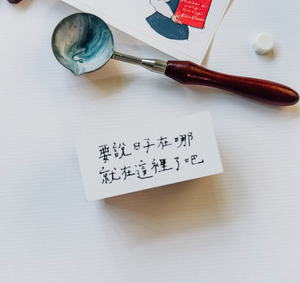 要說日子在哪
就在這裡了吧